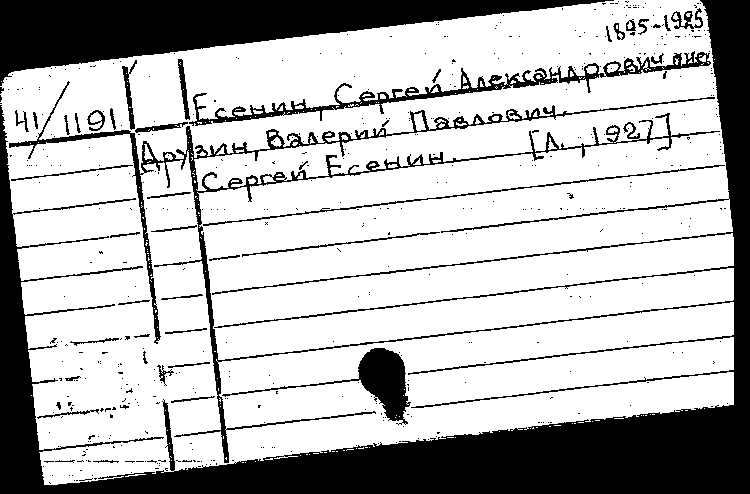 1895-1925
41/1191 Есенин, Сергей Александрович, писа
Друзин, Валерий Павлович.
Сергей Есенин. [Л., 1927].